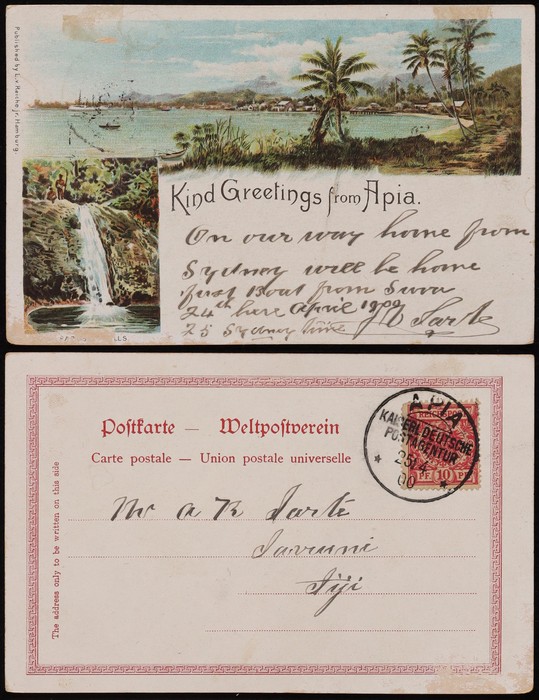 Published by L. v. Reiche jr. Hamburg.
Kind Greetings from Apia.
On our way home from
Sydney will be home
first Boat from Suva
24th here April 1900
25 Sydney time J V Tarte
LLS.
Postkarte — Weltpostverein
Carte postale — Union postale universelle
The address only to be written on this side
APIA
KAISERL. DEUTSCHE
POSTAGENTUR
25/4
00
REICHSPOST
PF 10 PF
Mr A R Tarte
Taviuni
Fiji